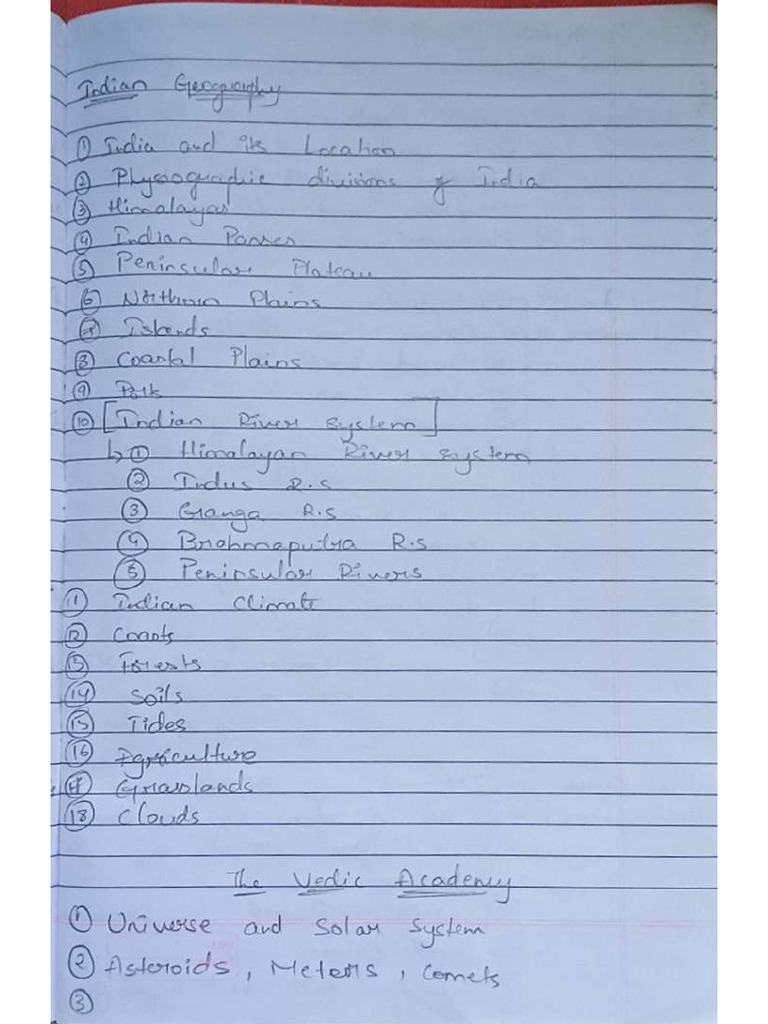 Indian Geography
① India and its Location
② Physiographic divisions of India
③ Himalayas
④ Indian Passes
⑤ Peninsular Plateau
⑥ Northern Plains
⑦ Islands
⑧ Coastal Plains
⑨ Ports
⑩ [Indian River System]
↳ ① Himalayan River System
② Indus R.S
③ Ganga R.S
④ Brahmaputra R.S
⑤ Peninsular Rivers
⑪ Indian Climate
⑫ Coasts
⑬ Forests
⑭ Soils
⑮ Tides
⑯ Agriculture
⑰ Grasslands
⑱ Clouds
The Vedic Academy
① Universe and Solar System
② Asteroids, Meteors, Comets
③